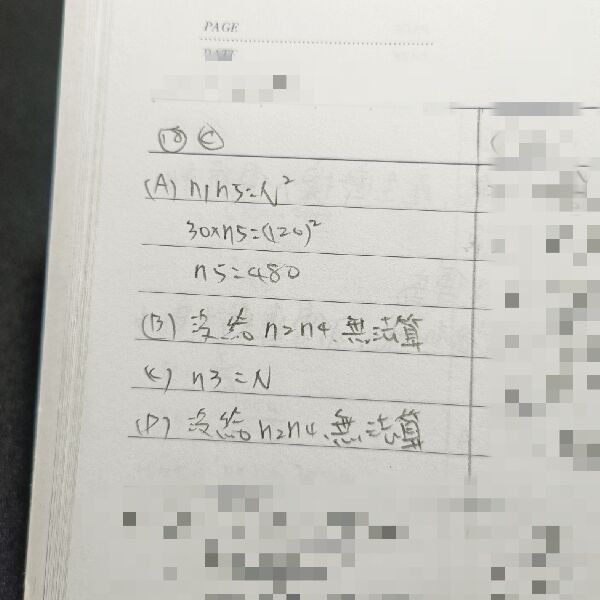 PAGE
DATE
⑱ Ⓒ
(A) n1n5=N²
30×n5=(120)²
n5=480
(B) 沒給n2n4,無法算
(C) n3=N
(D) 沒給n2n4,無法算